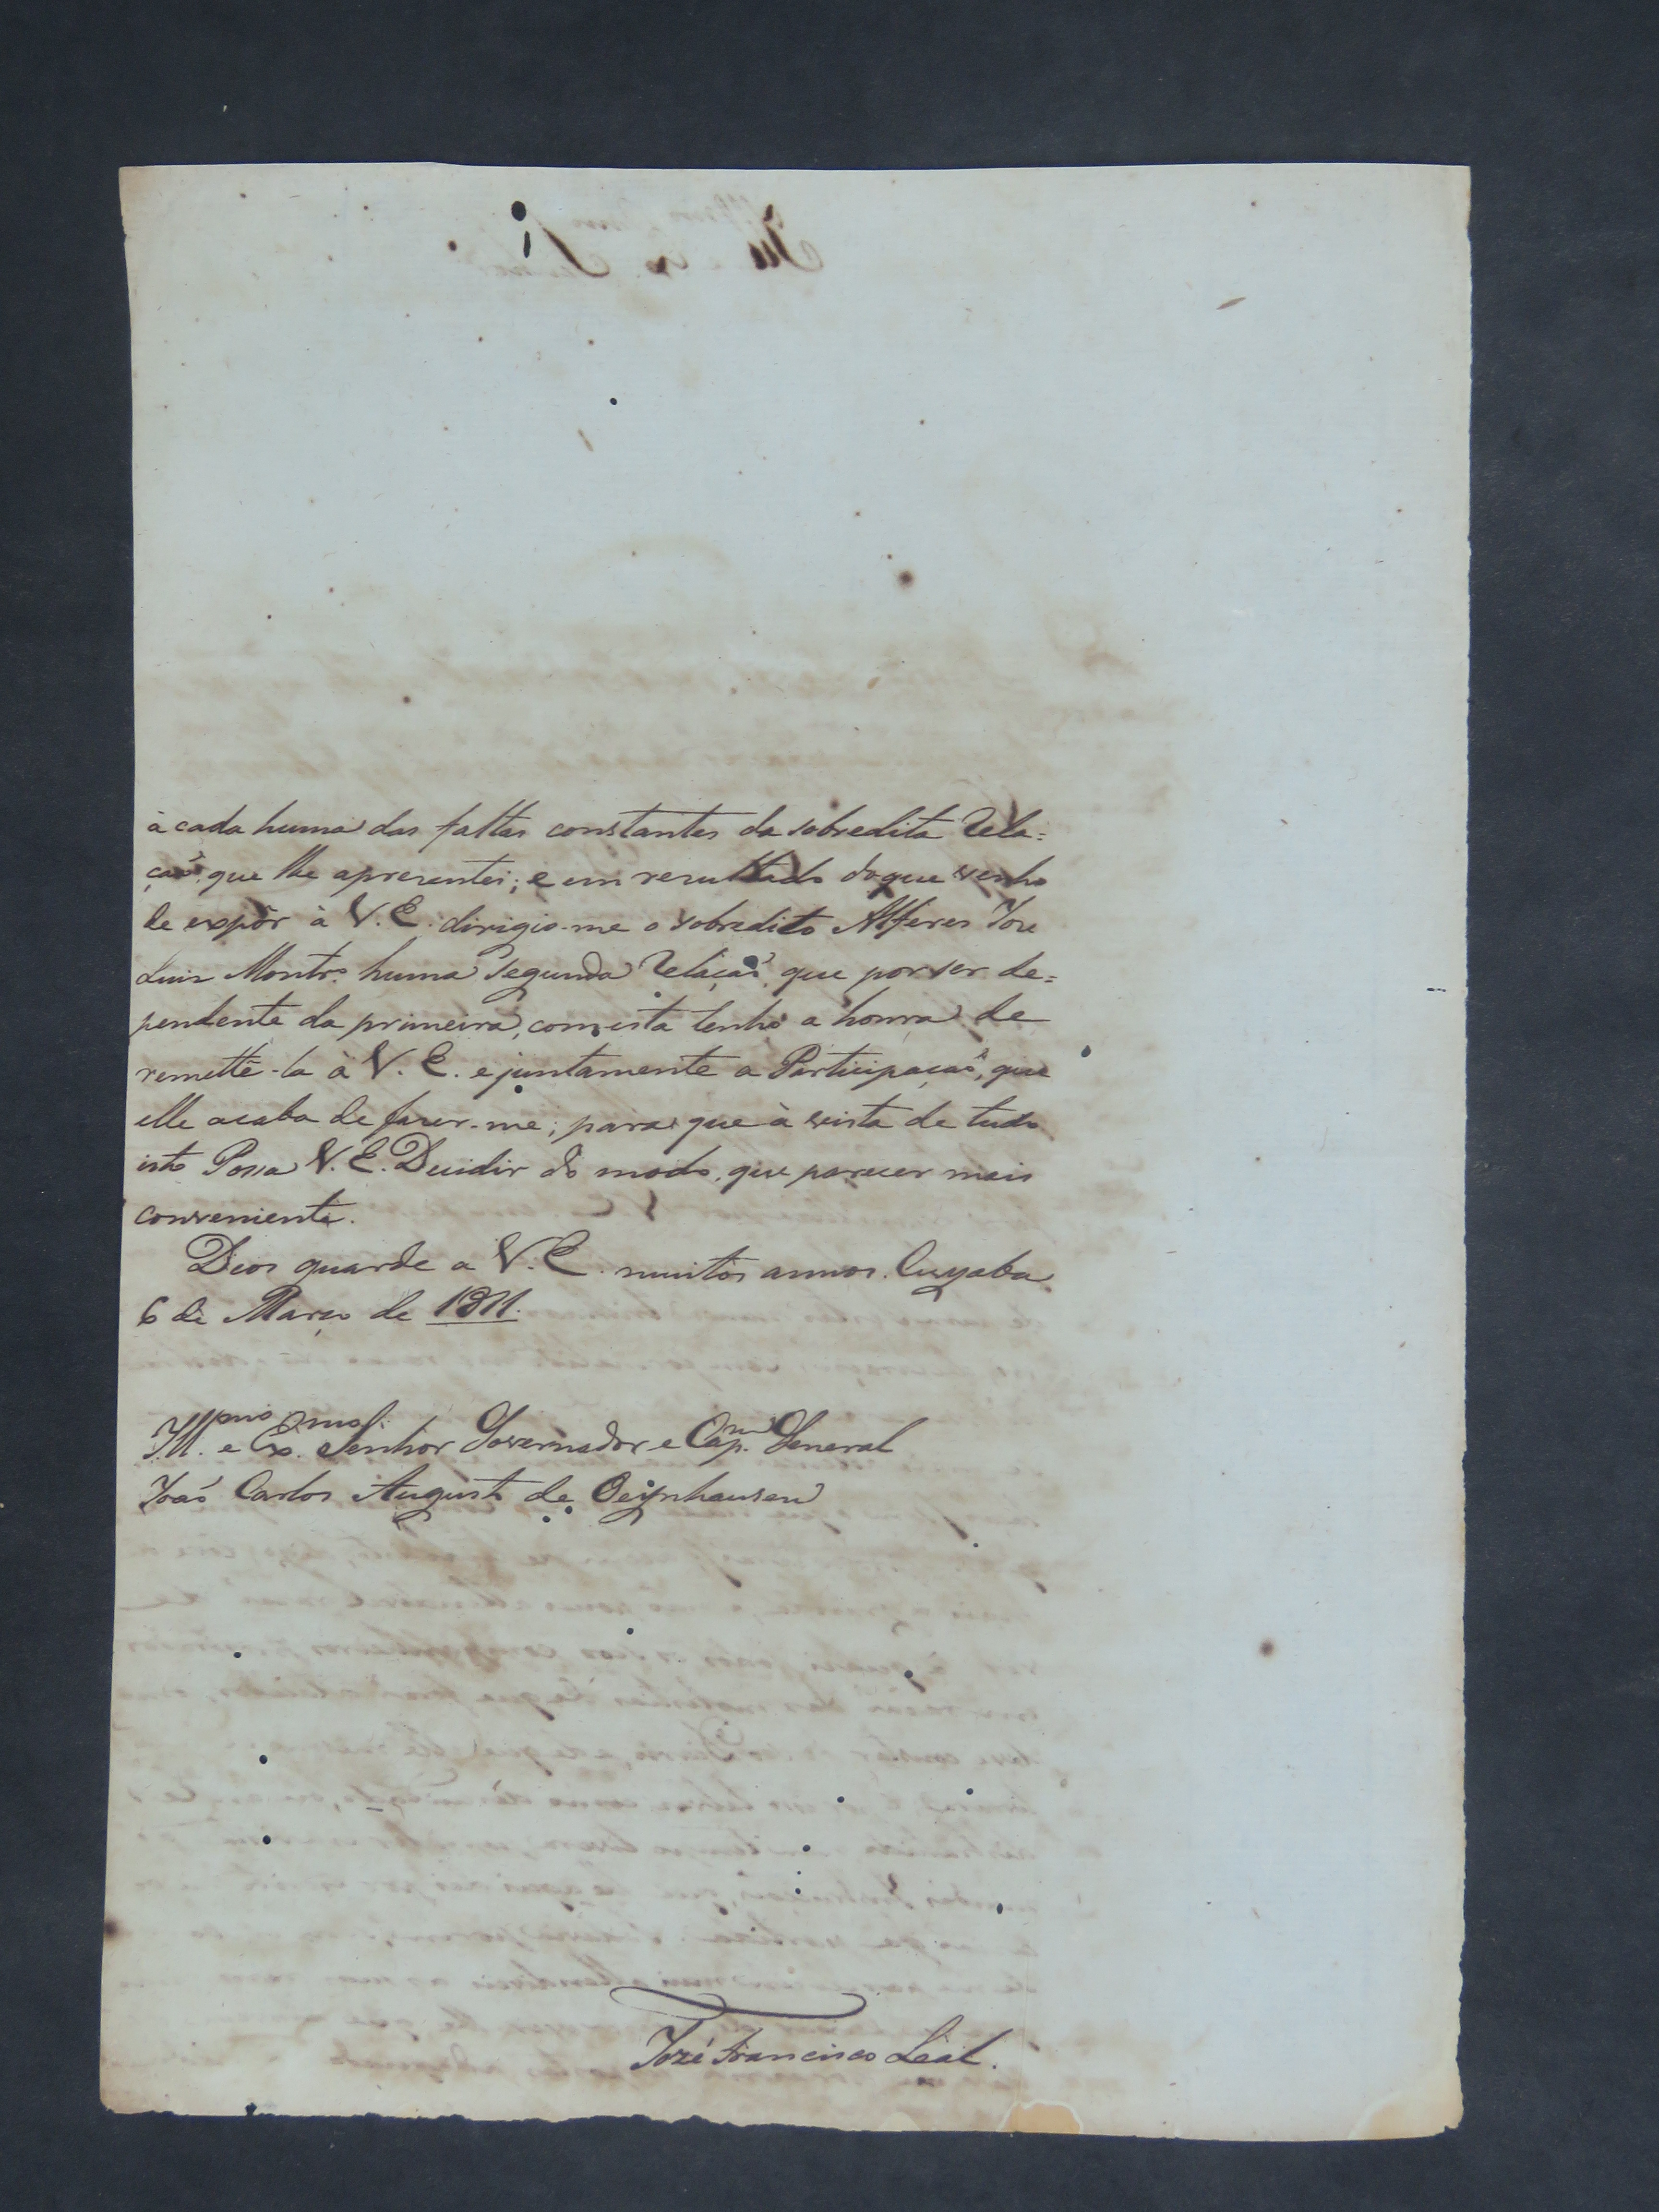 à cada huma das faltas constantes da sobredita Rela=
çaõ, que lhe apresentei; e em resultado do que venho
de expôr à V. E. dirigio-me o sobredito Alferes Joze
Luis Montr.º huma segunda Relaçaõ, que por ser de=
pendente da primeira, com esta tenho a honra de
remettê-la à V. E. e juntamente a Participaçaõ, que
elle acaba de fazer-me; para que à vista de tudo
isto Possa V. E. Decidir do modo, que parecer mais
conveniente.
Deos guarde a V. E. muitos annos. Cuyaba
6 de Março de 1811.
Ill.mo e Ex.mo Senhor Governador e Cap.m General
Joaõ Carlos Augusto de Oeynhausen
Jozé Francisco Leal.